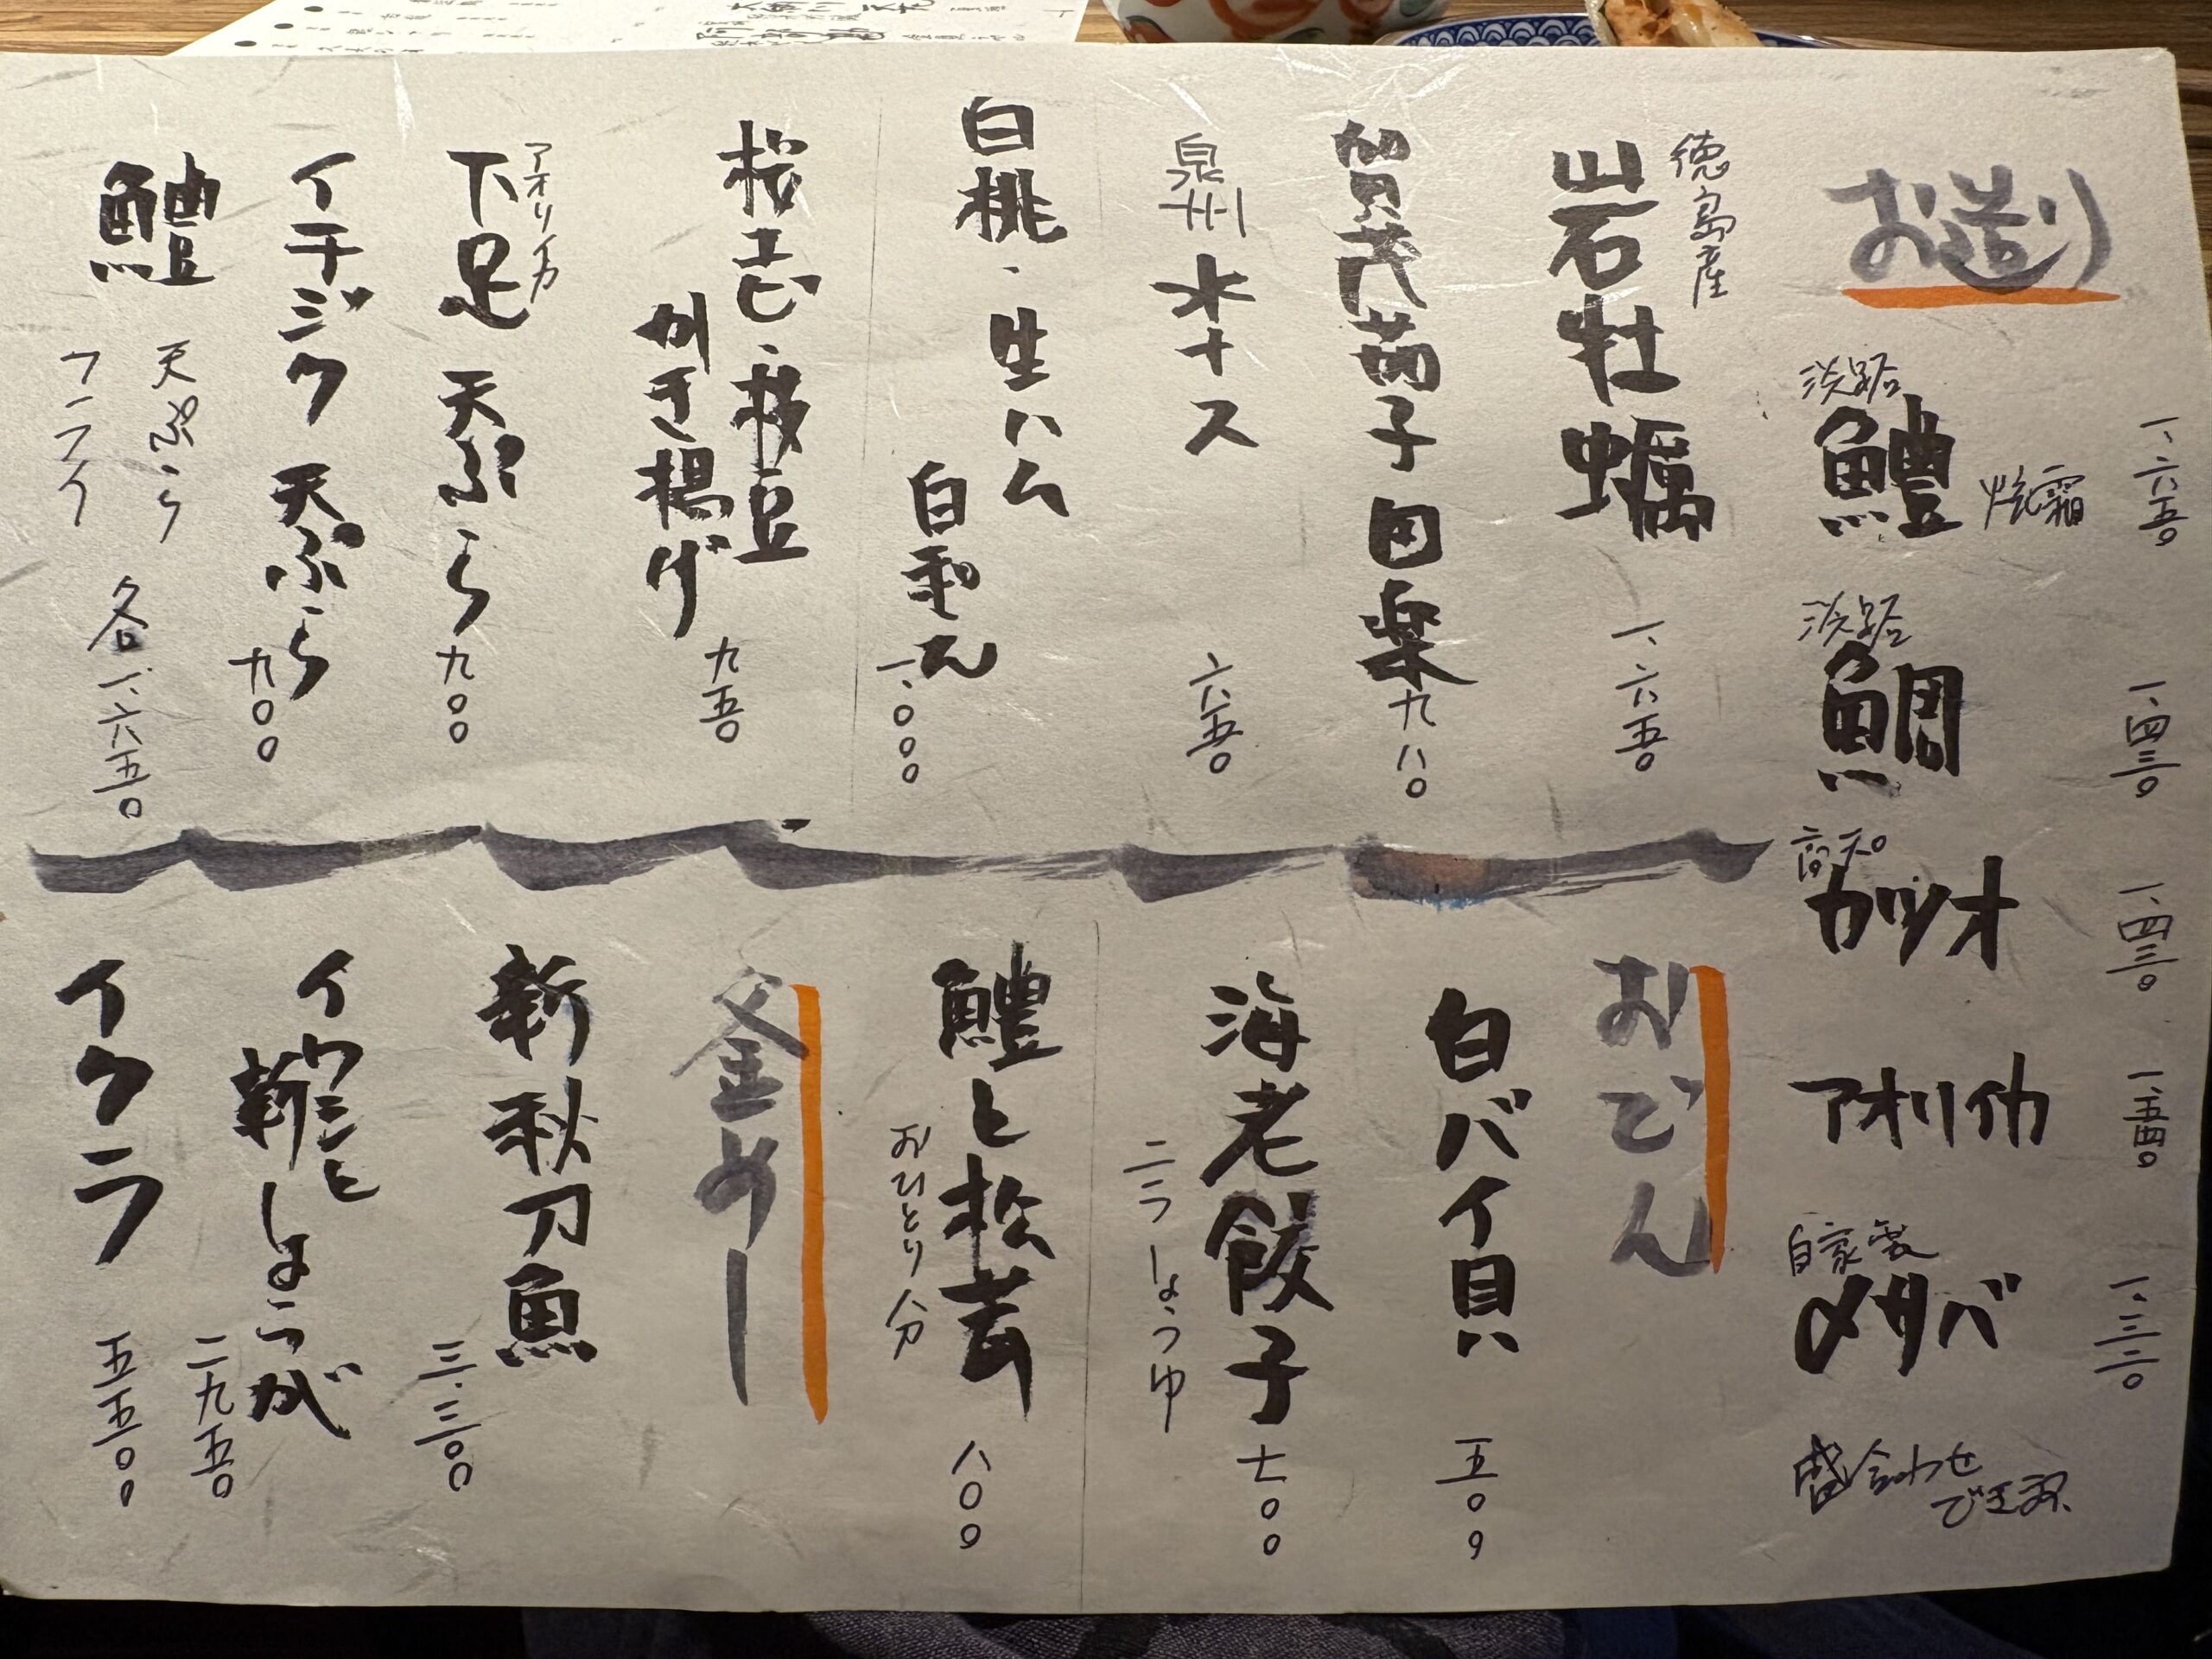 お造り
淡路 鱧 焼霜 一、六五〇
淡路 鯛 一、四三〇
高知 カツオ 一、四三〇
アオリイカ 一、五四〇
自家製 〆サバ 一、三二〇
盛合わせ
でき〼
徳島産
岩牡蠣 一、六五〇
賀茂茄子田楽 九八〇
泉州水ナス 六五〇
白桃、生ハム
白和え 一、〇〇〇
桜エビ、枝豆
かき揚げ 九五〇
アオリイカ
下足 天ぷら 九〇〇
イチジク 天ぷら 九〇〇
鱧 天ぷら
フライ 各一、六五〇
おでん
白バイ貝 五〇〇
海老餃子 七〇〇
二つ しょうゆ
鱧と松茸 八〇〇
おひとり分
釜めし
新秋刀魚 三、三〇〇
イワシと
新しょうが 二九五〇
イクラ 五五〇〇